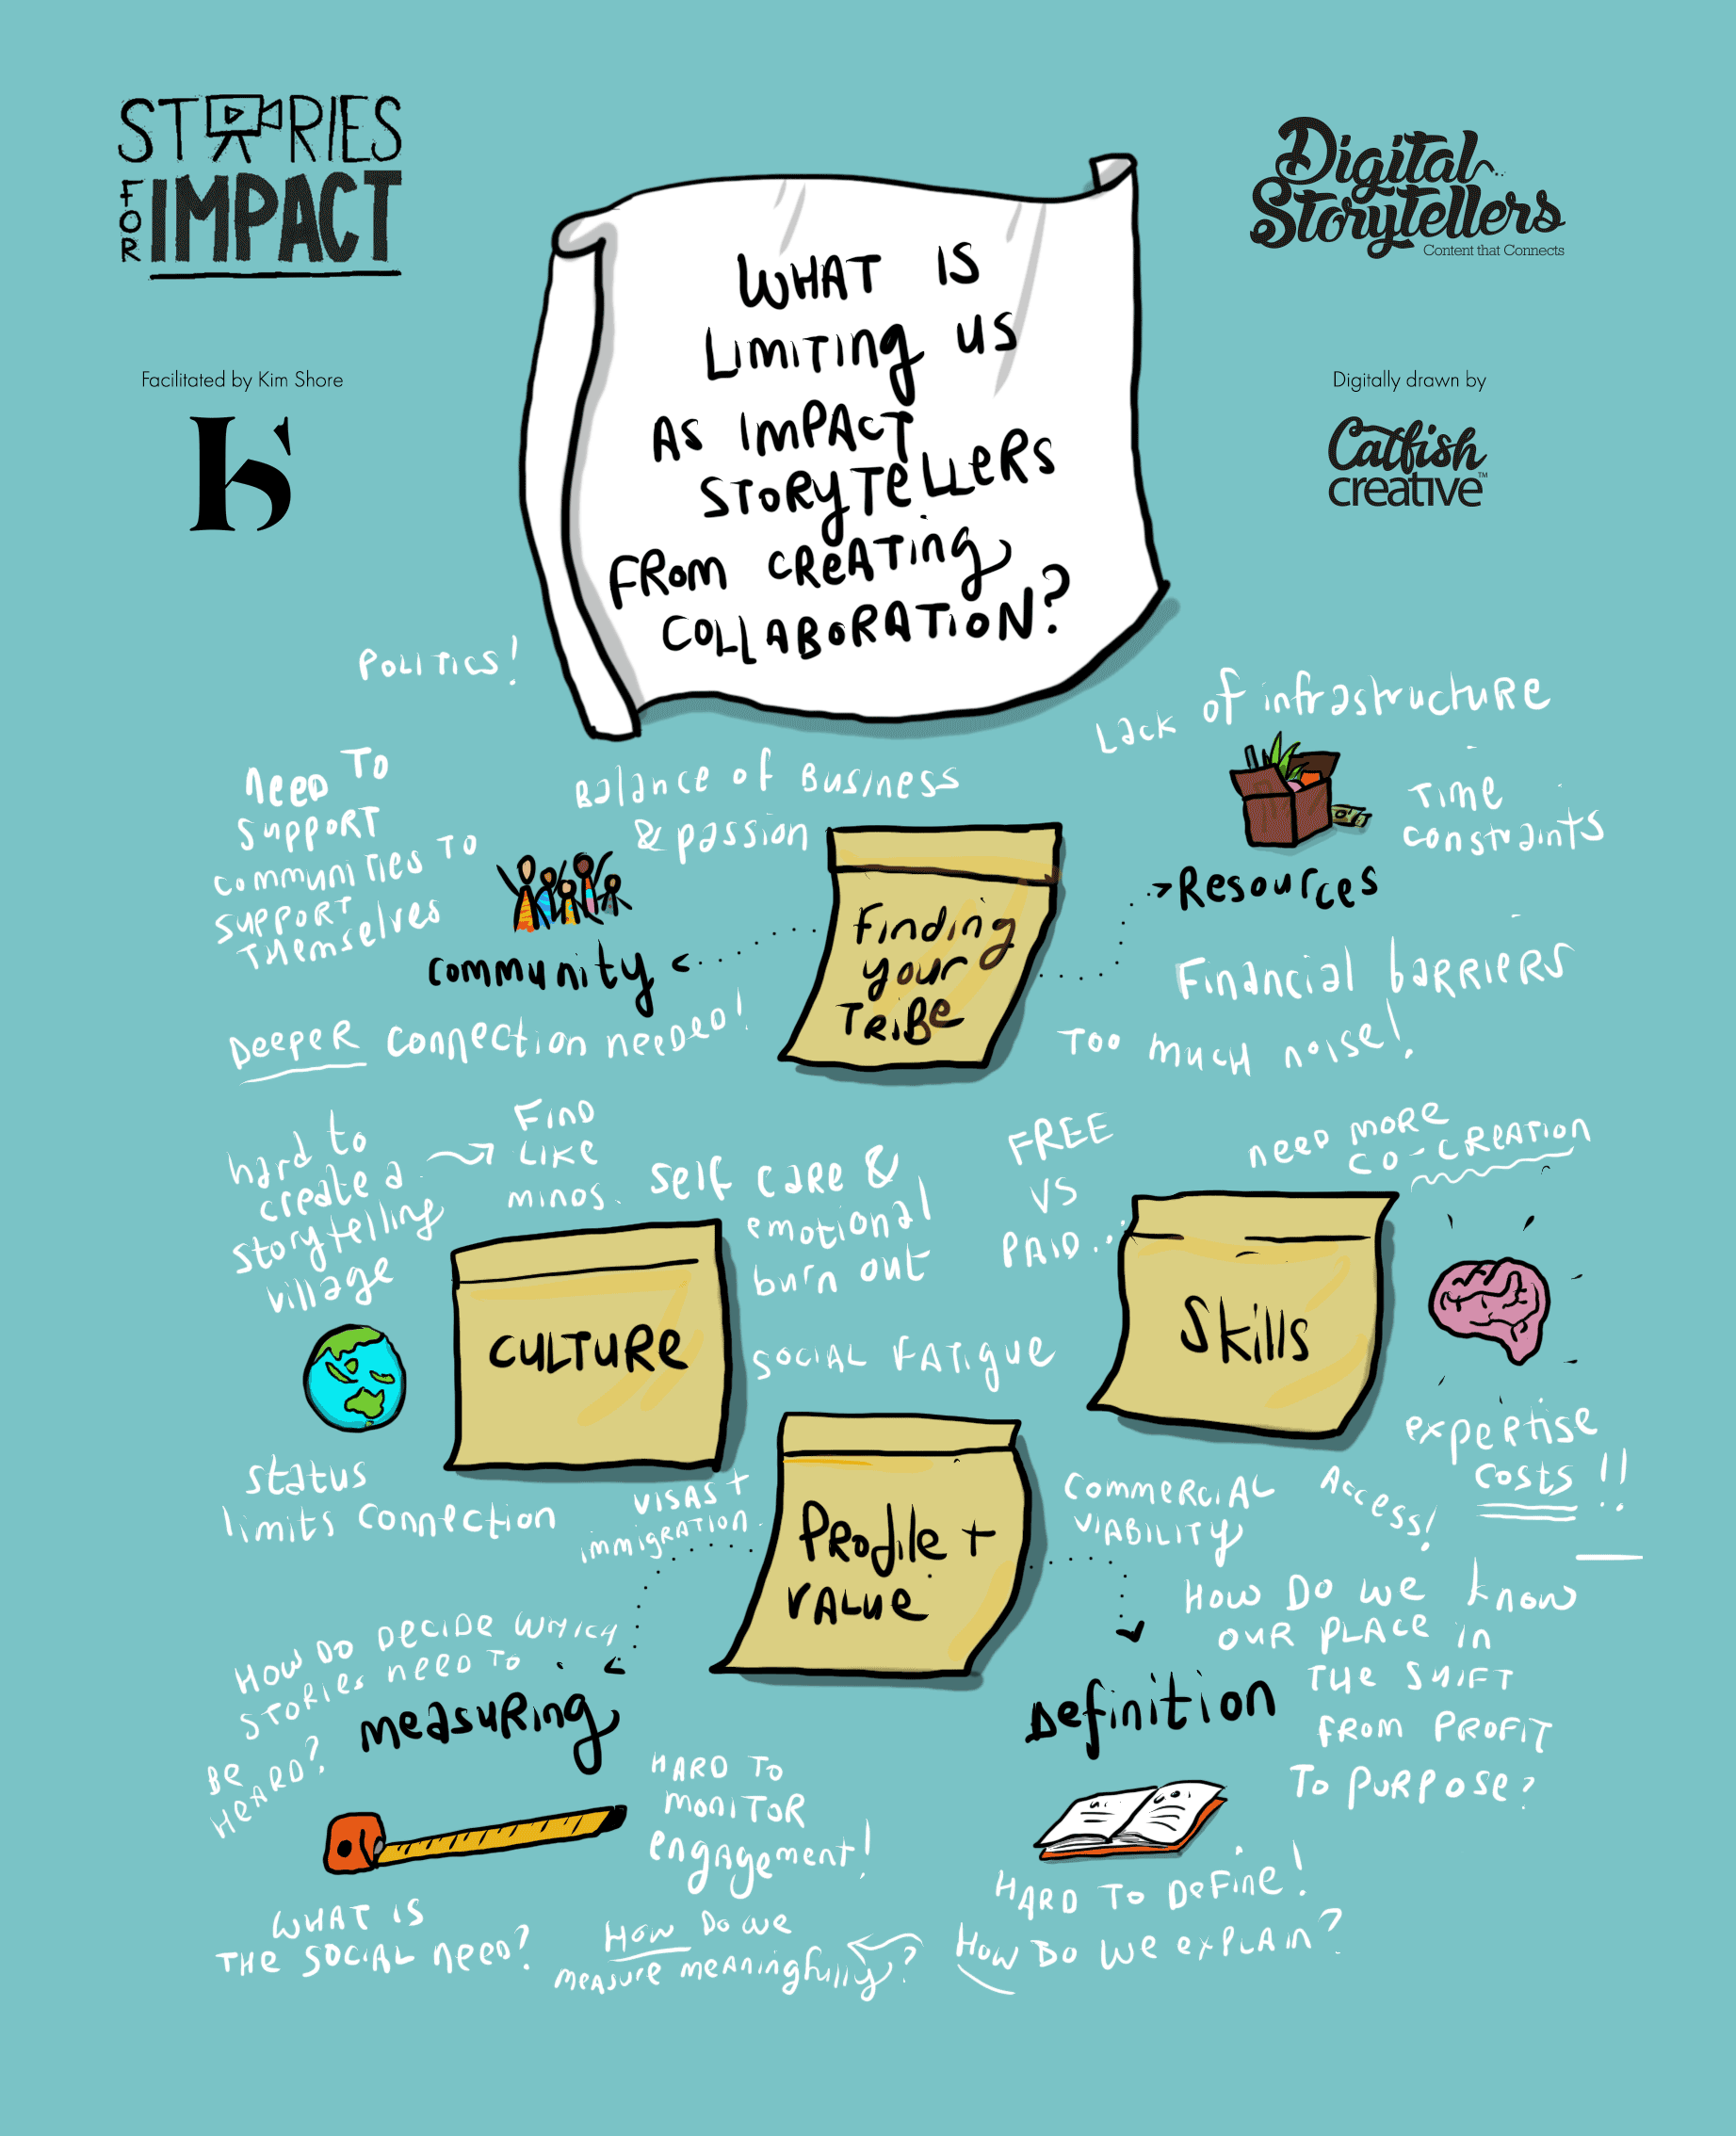 STORIES
FOR
IMPACT
Facilitated by Kim Shore
Digital
Storytellers
Content that Connects
Digitally drawn by
Catfish
creative™
WHAT IS
LIMITING US
AS IMPACT
STORYTELLERS
FROM CREATING
COLLABORATION?
POLITICS!
NEED TO
SUPPORT
COMMUNITIES TO
SUPPORT
THEMSELVES
Balance of Business
& passion
Community
DEEPER connection needed!
Finding
your
TRIBE
Lack of infrastructure
TIME
constraints
Resources
Financial BARRIERS
TOO much noise!
hard to
create a
storytelling
village
FIND
LIKE
MINDS.
self care &
emotional
burn out
FREE
VS
PAID..
NEED MORE
CO-CREATION
CULTURE
SOCIAL FATIGUE
Skills
expertise
costs!!
Access!
status
limits connection
VISAS +
immigration.
Profile +
VALUE
COMMERCIAL
VIABILITY
HOW DO DECIDE WHICH
STORIES NEED TO
BE
HEARD?
measuring
HARD TO
MONITOR
engagement!
WHAT IS
THE SOCIAL need?
How DO we
measure meaningfully?
HOW DO we know
OUR PLACE in
THE SHIFT
FROM PROFIT
TO PURPOSE?
Definition
HARD TO DEFINE!
HOW DO WE EXPLAIN?